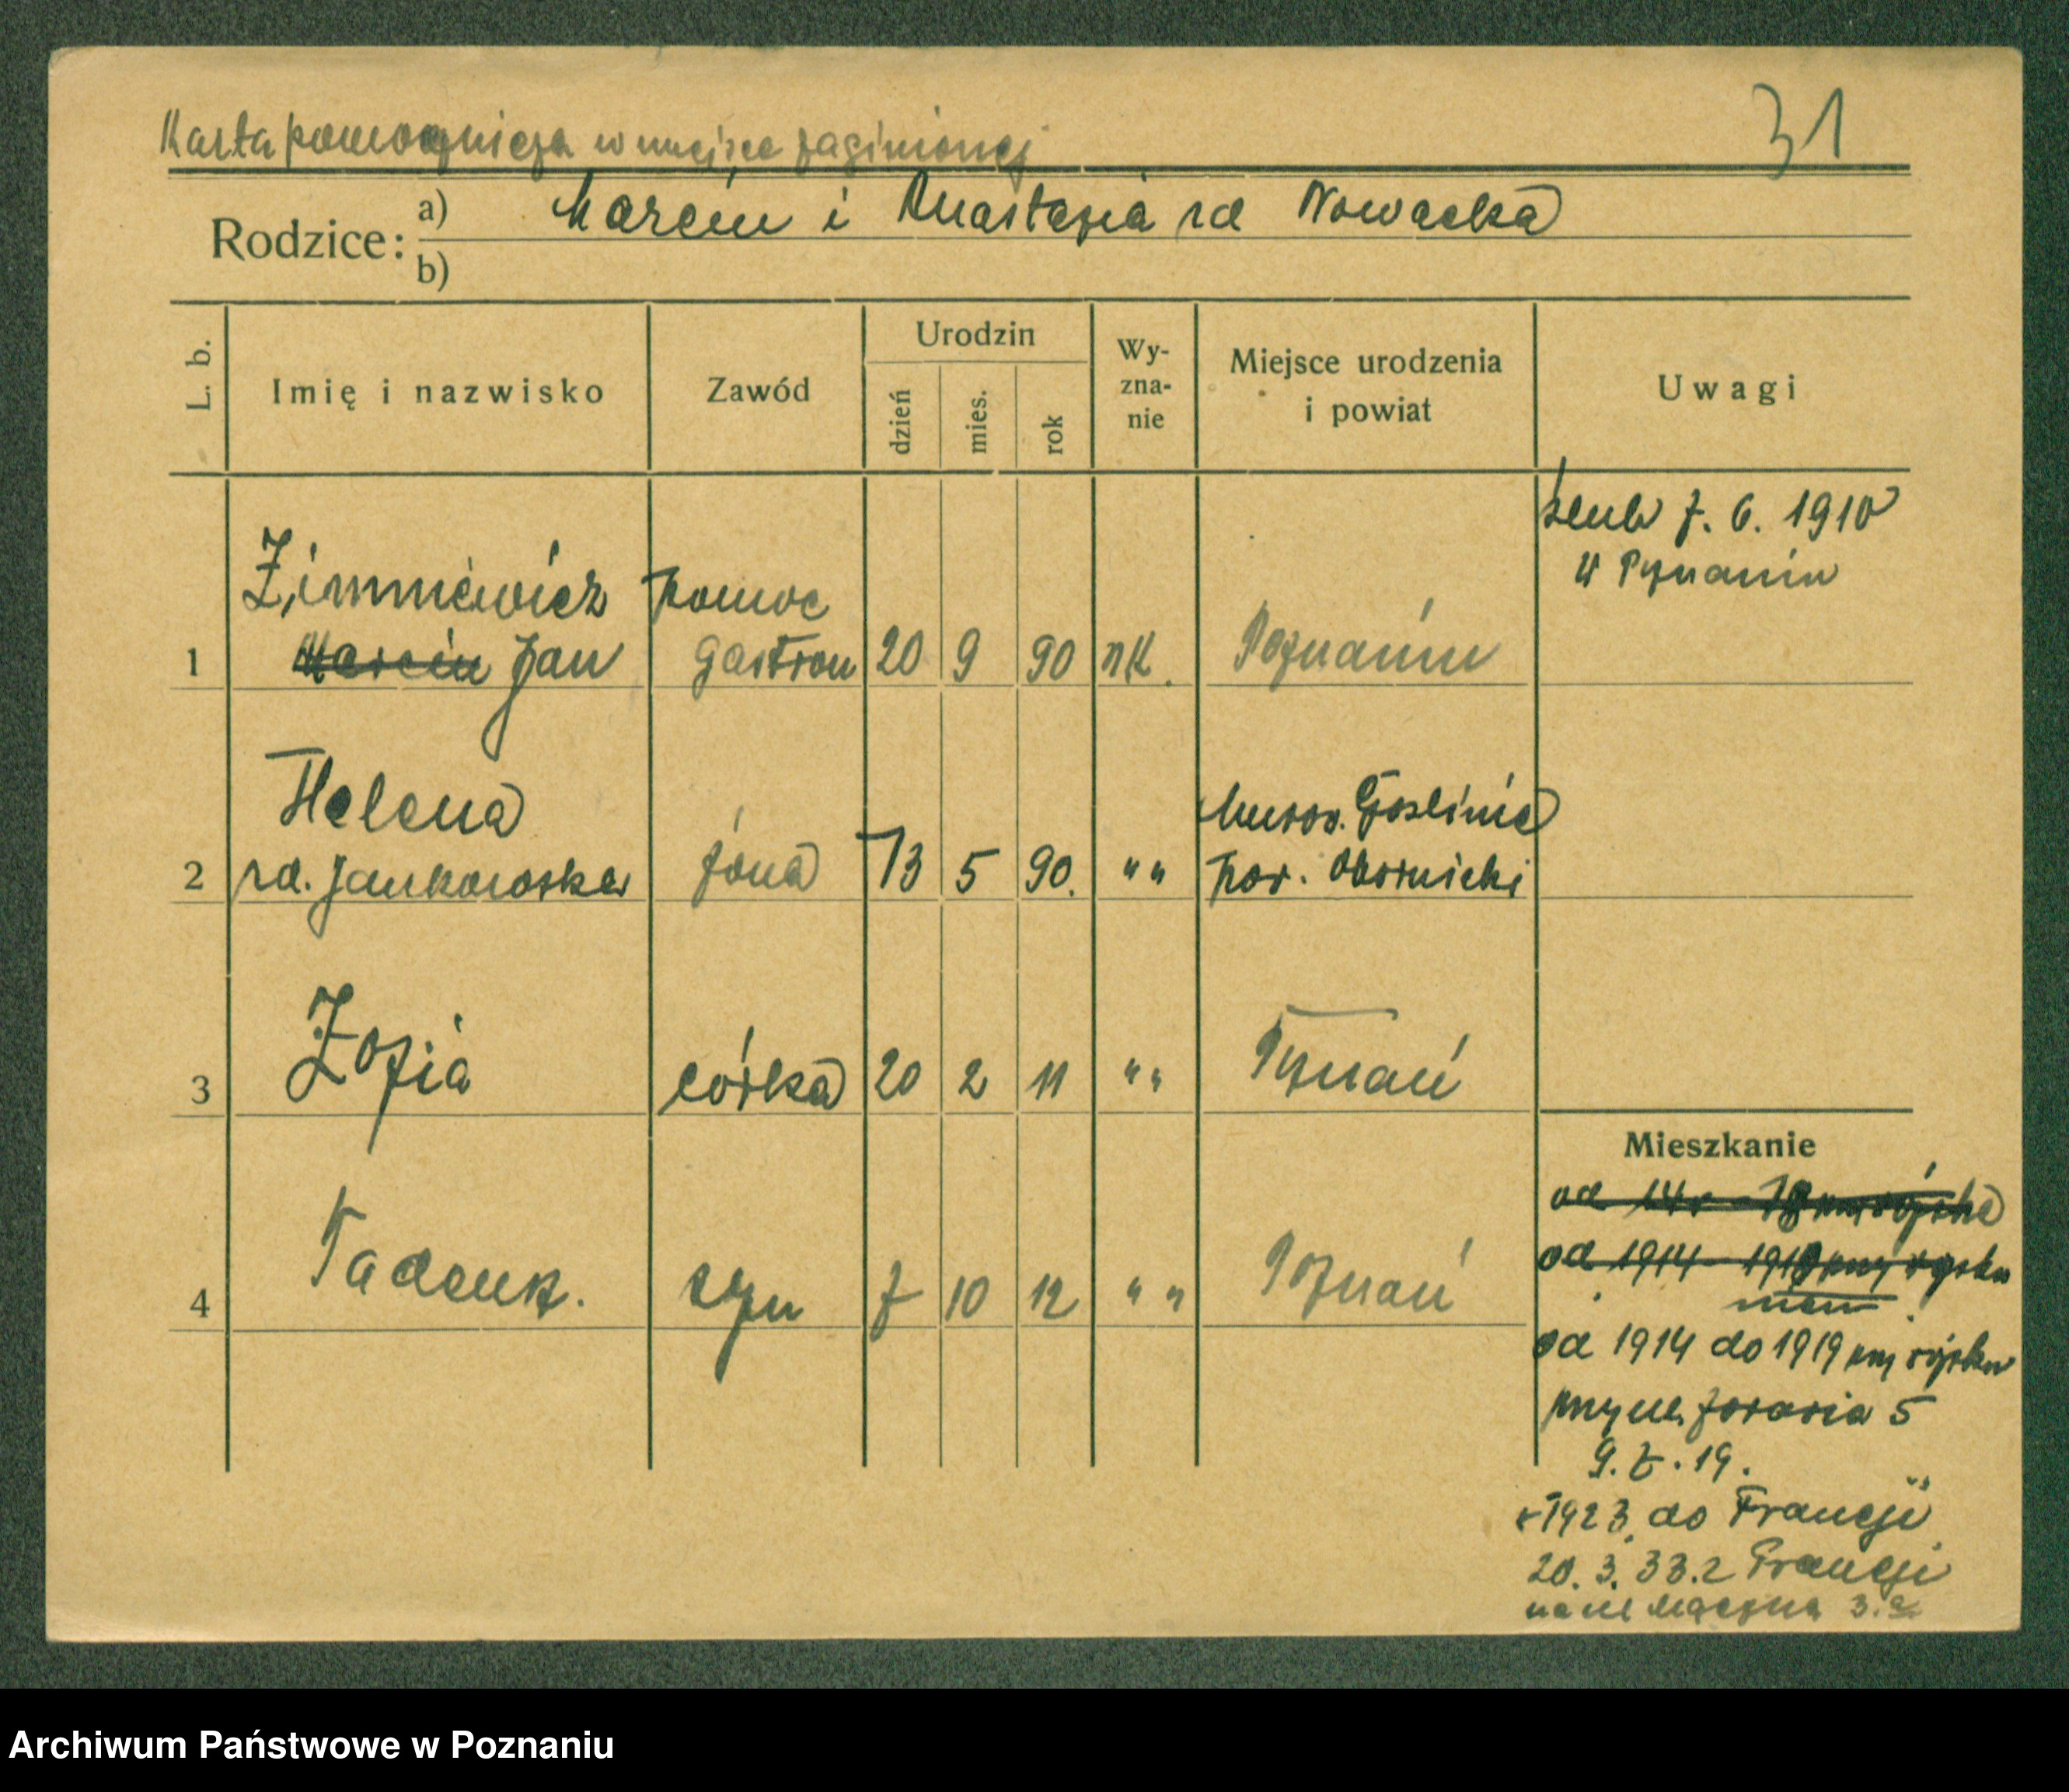 Karta pomocnicza w miejsce zaginionej
31
Rodzice: a) Marcin i Anastazia rd Nowacka
b)
L. b.
Imię i nazwisko
Zawód
Urodzin
dzień
mies.
rok
Wy-
zna-
nie
Miejsce urodzenia
i powiat
Uwagi
ślub 7. 6. 1910
w Poznaniu
Zimniewicz
pomoc
1 Marcin Jan gastron 20 9 90 rk. Poznaniu
Helena
Murow. Goslinie
2 rd. Jankowska żona 13 5 90. " " pow. Obornicki
3 Zofia córka 20 2 11 " " Poznań
Mieszkanie
od 14 r - 18 przy wojsku
od 1914 - 1919 przy wojsku
niem
4 Tadeusz. syn 7 10 12 " " Poznań
od 1914 do 1919 przy wojsku
przy ul. 5
19.
1923 do Francji
20. 3. 33. z Francji
na ul Mączna 3.
Archiwum Państwowe w Poznaniu